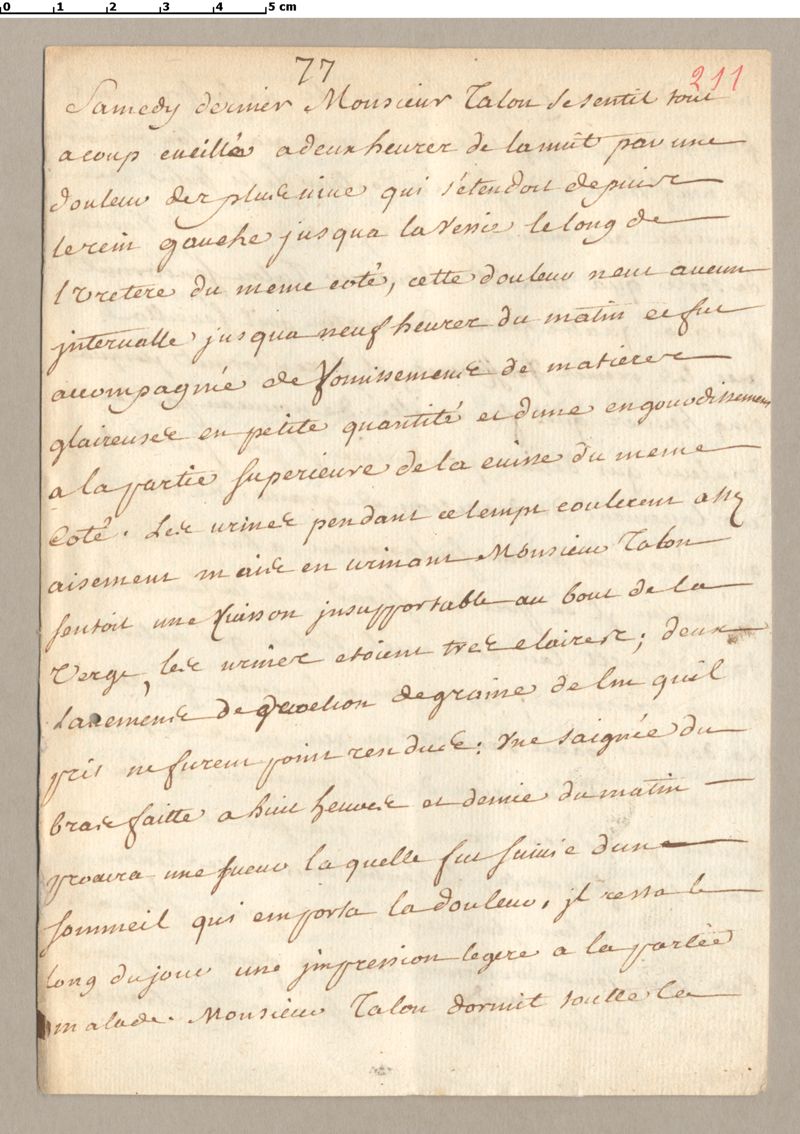 0 1 2 3 4 5 cm
77
211
Samedy dernier Monsieur Talon se sentit tout
acoup eueillé adeux heures de lanuit par une
douleur des plus uiue qui s'étendoit depuis
lerein gauche jusqua la Vessie le long de
l'Vretere du meme coté, cette douleur neut aucun
jnterualle jusqua neuf heures du matin et fut
accompagnée de Vomissemens de matieres
glaireuses en petite quantité et dune engourdissemens
a la partie superieure de la cuisse du meme
Coté. Les urines pendant cetemps coulerent assez
aisement mais en urinant Monsieur Talon
sentoit une Cuisson jnsupportable au bout de la
Verge, les urines etoient tres claires; deux
Lauemens de decoction degraine de lin quil
prit ne furent point rendues: Vne saignée du
bras faitte a huit heures et demie du matin
procura une sueur laquelle fut suiuie dun
sommeil qui emporta ladouleur, jl resta le
long dujour une jmpression legere a la partie
malade. Monsieur Talon dormit toutte la